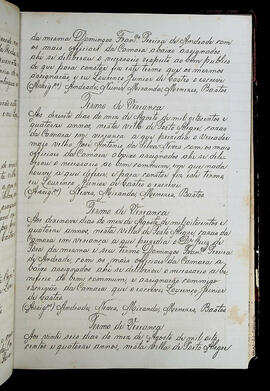 da mesma Domingos Fran.co Pereira de Andrade com
os mais officiaes da Camara abaixo assignados
ahi se deliberou o necessario respeito ao bem publico
de que para constar fiz este termo que os mesmos
assignarão, e eu Lourenço Junior de Castro o escrevi
(Assig.os) Andrade, Nunes, Miranda, Menezes, Bastos
Termo de Vereança
Aos dias do mez de Agosto de mil oito centos e
quatorze annos, nesta villa de Porto Alegre, cazas da
Camara em vereança a que presidio o Vereador
mais velho José Antonio da Silva Neves com os mais
officiaes da Camara abaixo assignados ahi se deli
berou o necessario ao bem commum, em que nada
houve a que deferir, e para constar fiz este termo
eu Lourenço Junior de Castro o escrevi
(Assig.os) Neves, Miranda, Menezes, Bastos
Termo de Vereança
Aos dezenove dias do mez de Agosto de mil oito centos e
quatorze annos, nesta Villa de Porto Alegre cazas da
Camara em vereança a que presidio o Juiz de
Fora da mesma e seu termo, Domingos Fran.co Pereira
de Andrade, com os mais officiaes da Camara, a
baixo assignados ahi se deliberou o necessario a
bem do commum, e assignarão commigo
escrivão da Camara que o escrevi Lourenço Junior
de Castro
(Assig.os) Andrade, Neves, Miranda, Menezes, Bastos
Termo de Vereança
Aos vinte seis dias do mez de Agosto de mil oito
centos e quatorze annos, nesta Villa de Porto Alegre